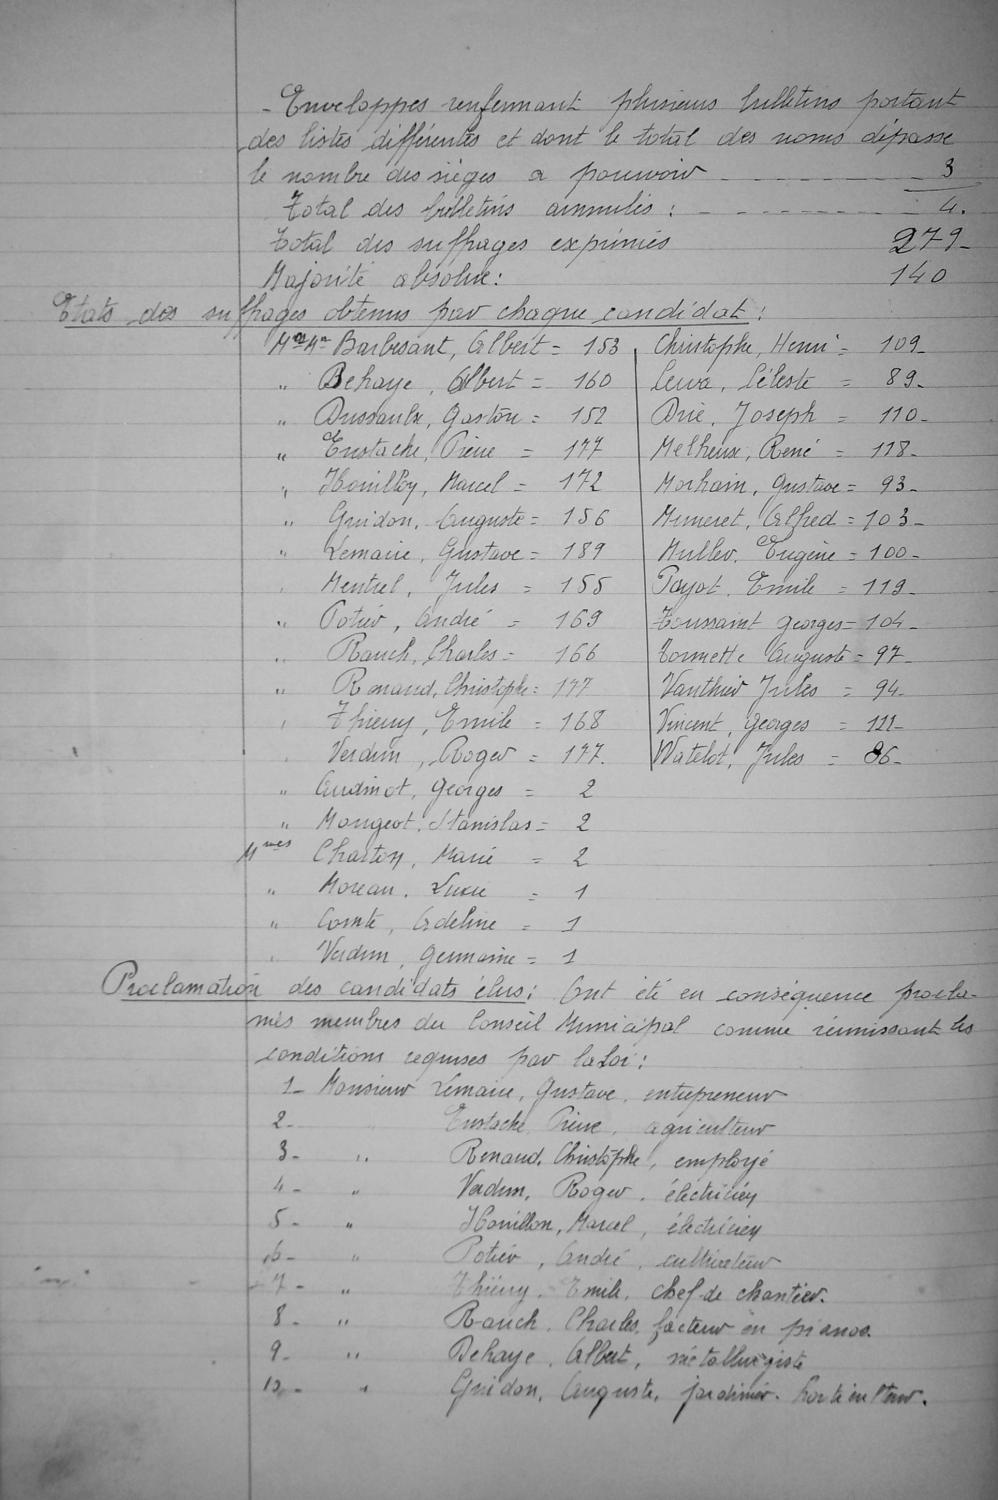 - Enveloppes renfermant plusieurs bulletins portant
des listes différentes et dont le total des noms dépasse
le nombre des sièges a pourvoir - - - - - - 3
Total des bulletins annulés : - - - - - - 4.
Total des suffrages exprimés 279-
Majorité absolue: 140
Etats des suffrages obtenus par chaque candidat :
Mr Mr Barbesant, Albert = 153
" Dehaye, Albert = 160
" Dussaulx, Gaston = 152
" Eustache, Pierre = 177
" Houillon, Marcel = 172
" Guidon, Auguste = 156
" Lemaire, Gustave = 189
" Mentrel, Jules = 155
" Potier, André = 169
" Rauch, Charles = 166
" Renaud, Christophe = 177
" Thierry, Emile = 168
" Verdun, Roger = 177.
" Audinot, Georges = 2
" Mongeot, Stanislas = 2
Mmes Charton, Marie = 2
" Moreau, Lucie = 1
" Comte, Adeline = 1
" Verdun, Germaine = 1
Christophe, Henri = 109-
Céleste = 89-
Drie, Joseph = 110-
Melheux, René = 118-
Morhain, Gustave = 93-
Mimeret, Alfred = 103-
Muller, Eugène = 100-
Payot, Emile = 119-
Toussaint Georges = 104-
Auguste = 97-
Vauthier Jules = 94-
Vincent, Georges = 121-
Watelot, Jules = 86-
Proclamation des candidats élus: Ont été en conséquence procla-
més membres du Conseil Municipal comme réunissant les
conditions requises par la Loi :
1- Monsieur Lemaire, Gustave, entrepreneur
2- Eustache Pierre, agriculteur
3- " Renaud, Christophe, employé
4- " Verdun, Roger, électricien
5- " Houillon, Marcel, électricien
6- " Potier, André, cultivateur
7- " Thierry, Emile, chef de chantier.
8- " Rauch, Charles, facteur en pianos.
9- " Dehaye, Albert, métallurgiste
10- " Guidon, Auguste, jardinier-horticulteur.